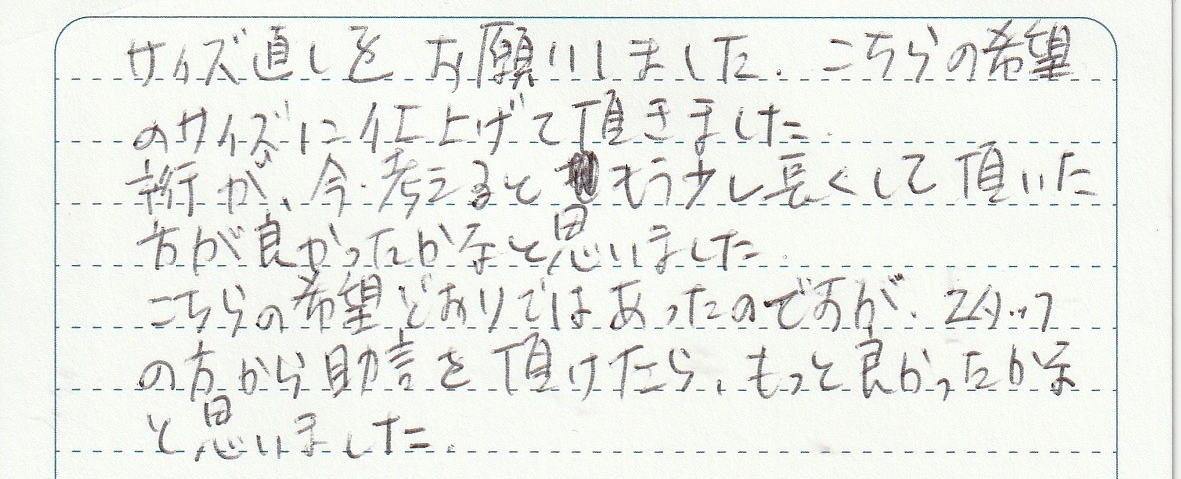 サイズ直しを お願いしました. こちらの希望
のサイズに仕上げて頂きました.
裄が、今.考えると もう少し長くして頂いた
方が良かったかなと思いました.
こちらの希望どおりではあったのですが、スタッフ
の方から助言を頂けたら、もっと良かったかな
と思いました.